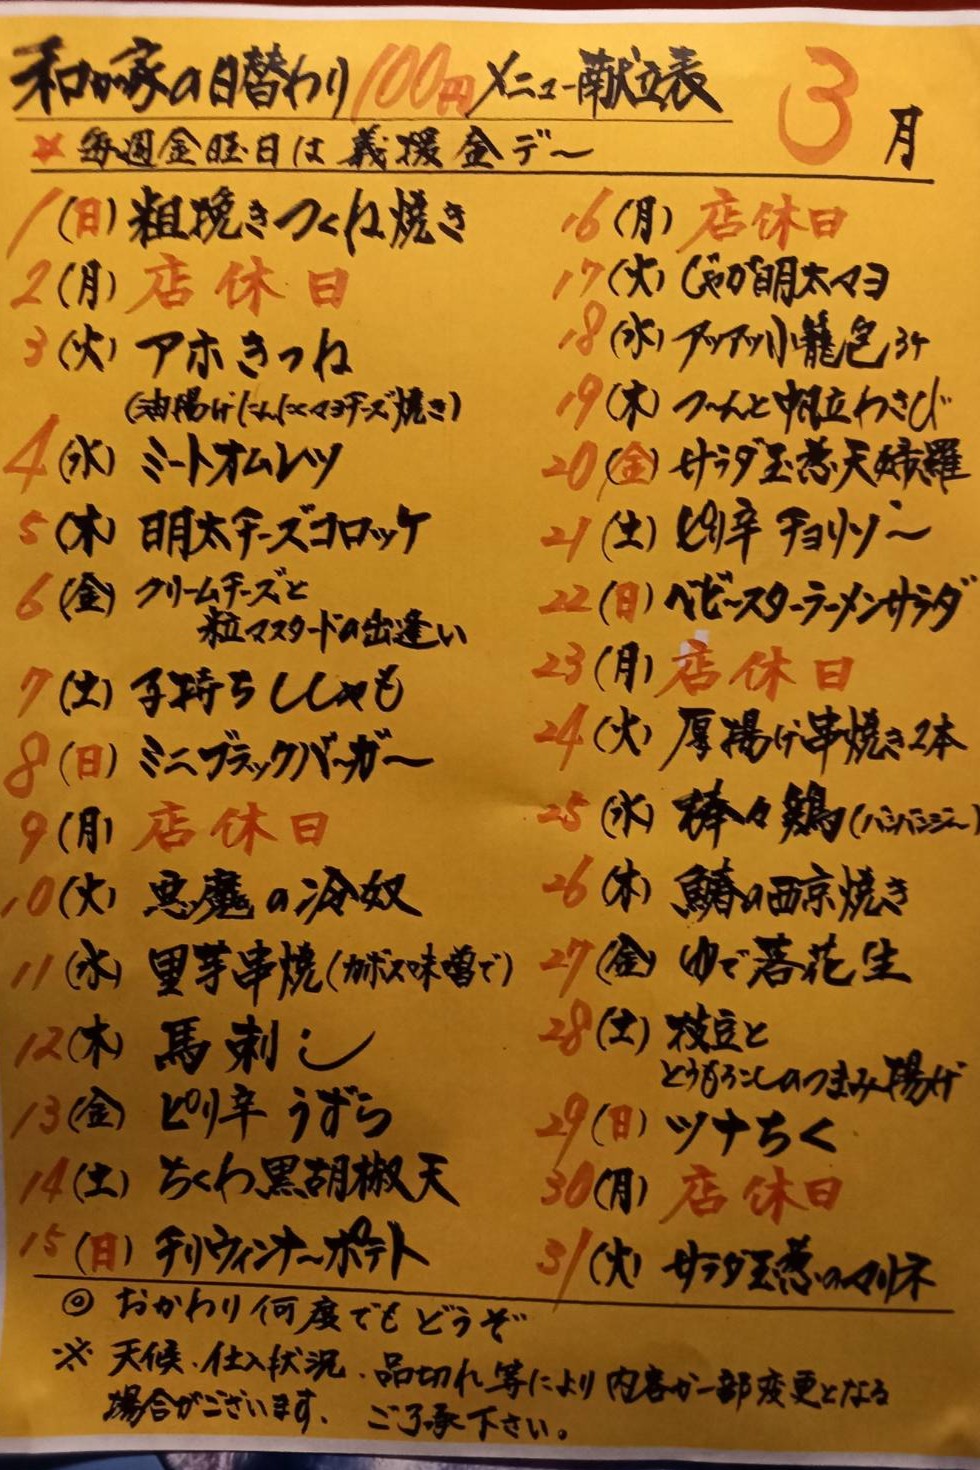 和が家の日替わり100円メニュー献立表 3月
★毎週金曜日は義援金デ～
1(日) 粗挽きつくね焼き
2(月) 店休日
3(火) アホきつね
(油揚げにんにくマヨチーズ焼き)
4(水) ミートオムレツ
5(木) 明太チーズコロッケ
6(金) クリームチーズと
粒マスタードの出逢い
7(土) 子持ちししゃも
8(日) ミニブラックバーガー
9(月) 店休日
10(火) 悪魔の冷奴
11(水) 里芋串焼(カボス味噌で)
12(木) 馬刺し
13(金) ピリ辛うずら
14(土) ちくわ黒胡椒天
15(日) チリウィンナーポテト
16(月) 店休日
17(火) じゃが明太マヨ
18(水) アツアツ小籠包3ケ
19(木) つ～んと帆立わさび
20(金) サラダ玉葱天婦羅
21(土) ピリ辛チョリソー
22(日) ベビースターラーメンサラダ
23(月) 店休日
24(火) 厚揚げ串焼き2本
25(水) 棒々鶏(バンバンジー)
26(木) 鰆の西京焼き
27(金) ゆで落花生
28(土) 枝豆と
とうもろこしのつまみ揚げ
29(日) ツナちく
30(月) 店休日
31(火) サラダ玉葱のマリネ
◎ おかわり何度でもどうぞ
※ 天候、仕入状況、品切れ等により内容が一部変更となる
場合がございます。ご了承下さい。